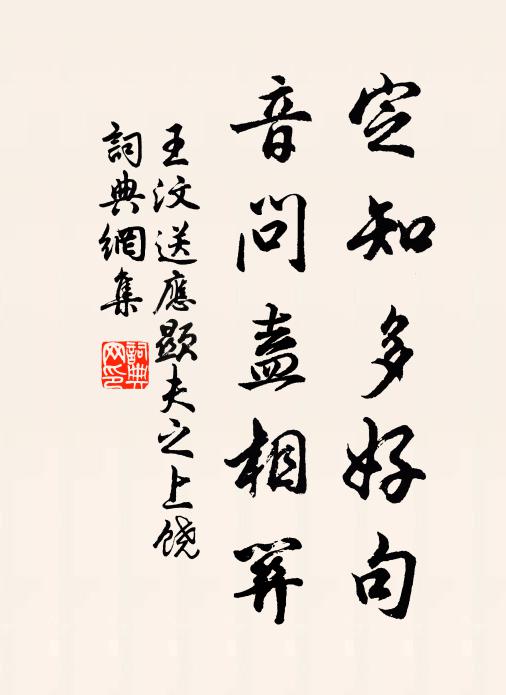 定知多好句
音问盍相
王汶送應顕夫之上饶
詞典網集
詞典网印